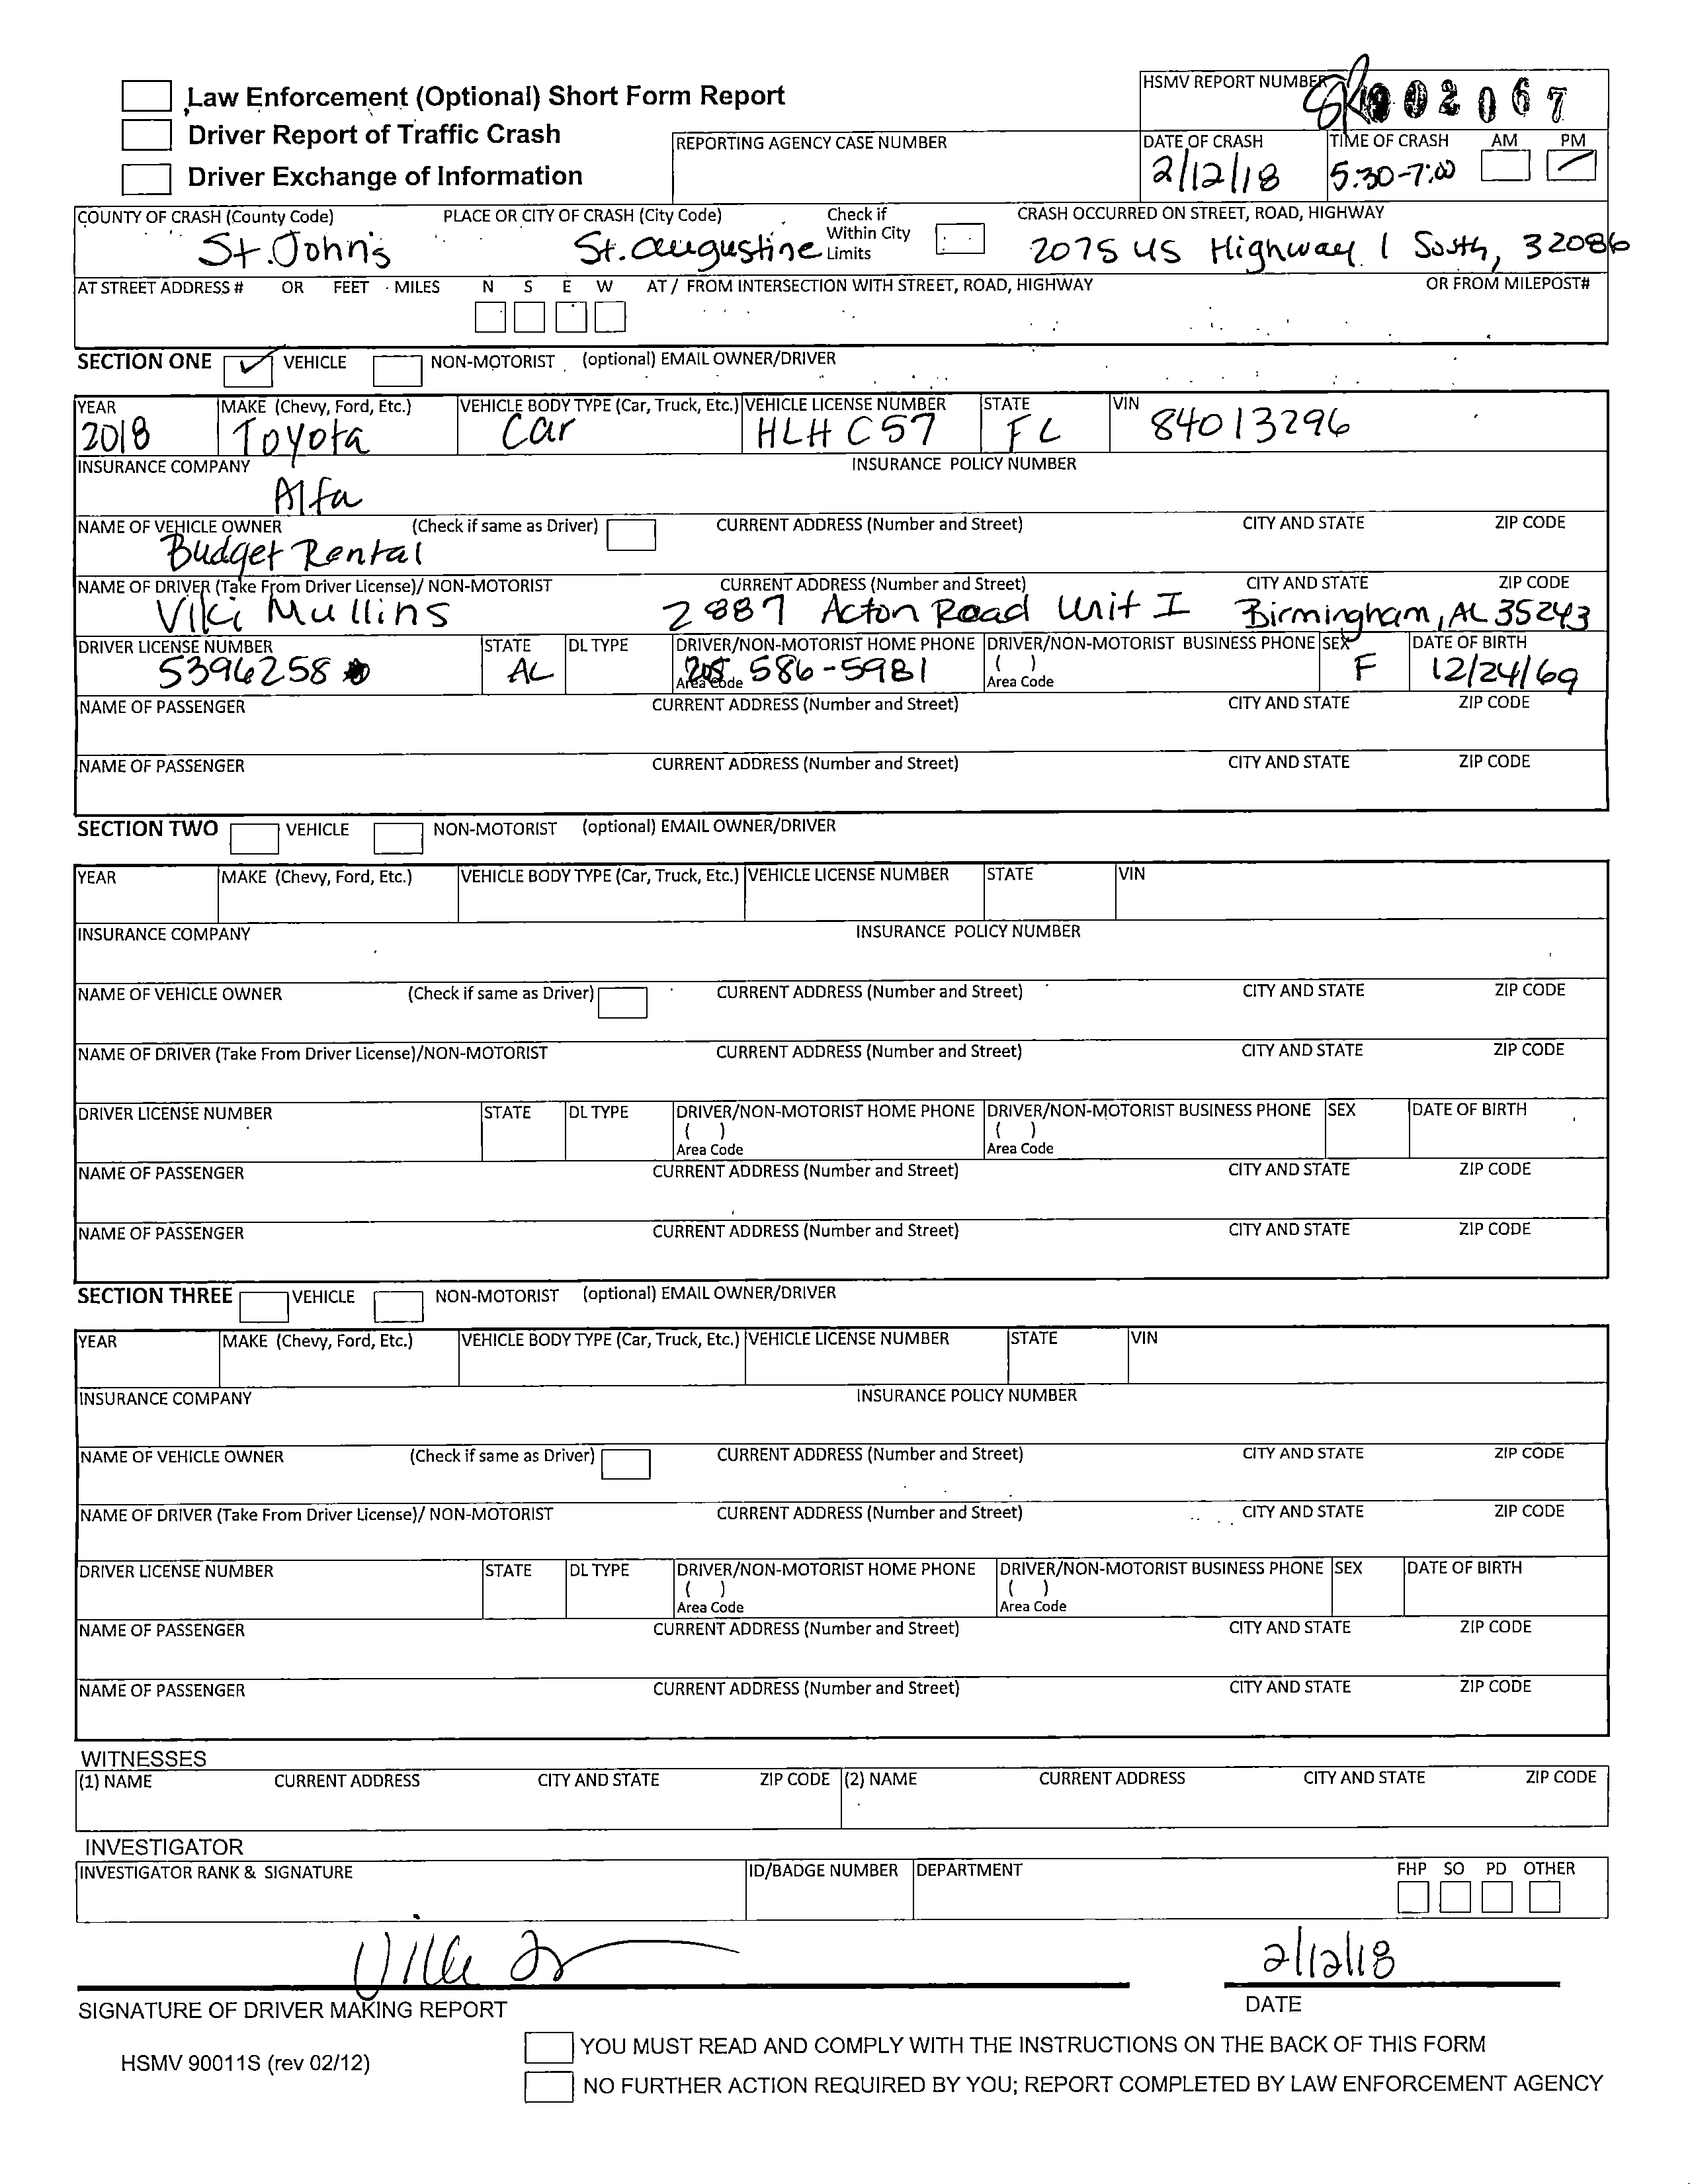 Law Enforcement (Optional) Short Form Report
Driver Report of Traffic Crash
Driver Exchange of Information
HSMV REPORT NUMBER
02067
REPORTING AGENCY CASE NUMBER
DATE OF CRASH TIME OF CRASH AM PM
2/12/18 5:30-7:00
COUNTY OF CRASH (County Code) PLACE OR CITY OF CRASH (City Code) Check if Within City Limits CRASH OCCURRED ON STREET, ROAD, HIGHWAY
St. John's St. Augustine 2075 US Highway 1 South, 32086
AT STREET ADDRESS # OR FEET MILES N S E W AT / FROM INTERSECTION WITH STREET, ROAD, HIGHWAY OR FROM MILEPOST#
SECTION ONE VEHICLE NON-MOTORIST (optional) EMAIL OWNER/DRIVER
YEAR MAKE (Chevy, Ford, Etc.) VEHICLE BODY TYPE (Car, Truck, Etc.) VEHICLE LICENSE NUMBER STATE VIN
2018 Toyota Car HLH C57 FL 84013296
INSURANCE COMPANY INSURANCE POLICY NUMBER
Alfa
NAME OF VEHICLE OWNER (Check if same as Driver) CURRENT ADDRESS (Number and Street) CITY AND STATE ZIP CODE
Budget Rental
NAME OF DRIVER (Take From Driver License)/ NON-MOTORIST CURRENT ADDRESS (Number and Street) CITY AND STATE ZIP CODE
Viki Mullins 2887 Acton Road Unit I Birmingham, AL 35243
DRIVER LICENSE NUMBER STATE DL TYPE DRIVER/NON-MOTORIST HOME PHONE DRIVER/NON-MOTORIST BUSINESS PHONE SEX DATE OF BIRTH
5396258 AL 205 586-5981 ( ) F 12/24/69
Area Code Area Code
NAME OF PASSENGER CURRENT ADDRESS (Number and Street) CITY AND STATE ZIP CODE
NAME OF PASSENGER CURRENT ADDRESS (Number and Street) CITY AND STATE ZIP CODE
SECTION TWO VEHICLE NON-MOTORIST (optional) EMAIL OWNER/DRIVER
YEAR MAKE (Chevy, Ford, Etc.) VEHICLE BODY TYPE (Car, Truck, Etc.) VEHICLE LICENSE NUMBER STATE VIN
INSURANCE COMPANY INSURANCE POLICY NUMBER
NAME OF VEHICLE OWNER (Check if same as Driver) CURRENT ADDRESS (Number and Street) CITY AND STATE ZIP CODE
NAME OF DRIVER (Take From Driver License)/NON-MOTORIST CURRENT ADDRESS (Number and Street) CITY AND STATE ZIP CODE
DRIVER LICENSE NUMBER STATE DL TYPE DRIVER/NON-MOTORIST HOME PHONE DRIVER/NON-MOTORIST BUSINESS PHONE SEX DATE OF BIRTH
( ) ( )
Area Code Area Code
NAME OF PASSENGER CURRENT ADDRESS (Number and Street) CITY AND STATE ZIP CODE
NAME OF PASSENGER CURRENT ADDRESS (Number and Street) CITY AND STATE ZIP CODE
SECTION THREE VEHICLE NON-MOTORIST (optional) EMAIL OWNER/DRIVER
YEAR MAKE (Chevy, Ford, Etc.) VEHICLE BODY TYPE (Car, Truck, Etc.) VEHICLE LICENSE NUMBER STATE VIN
INSURANCE COMPANY INSURANCE POLICY NUMBER
NAME OF VEHICLE OWNER (Check if same as Driver) CURRENT ADDRESS (Number and Street) CITY AND STATE ZIP CODE
NAME OF DRIVER (Take From Driver License)/ NON-MOTORIST CURRENT ADDRESS (Number and Street) CITY AND STATE ZIP CODE
DRIVER LICENSE NUMBER STATE DL TYPE DRIVER/NON-MOTORIST HOME PHONE DRIVER/NON-MOTORIST BUSINESS PHONE SEX DATE OF BIRTH
( ) ( )
Area Code Area Code
NAME OF PASSENGER CURRENT ADDRESS (Number and Street) CITY AND STATE ZIP CODE
NAME OF PASSENGER CURRENT ADDRESS (Number and Street) CITY AND STATE ZIP CODE
WITNESSES
(1) NAME CURRENT ADDRESS CITY AND STATE ZIP CODE (2) NAME CURRENT ADDRESS CITY AND STATE ZIP CODE
INVESTIGATOR
INVESTIGATOR RANK & SIGNATURE ID/BADGE NUMBER DEPARTMENT FHP SO PD OTHER
2/12/18
SIGNATURE OF DRIVER MAKING REPORT DATE
YOU MUST READ AND COMPLY WITH THE INSTRUCTIONS ON THE BACK OF THIS FORM
HSMV 90011S (rev 02/12)
NO FURTHER ACTION REQUIRED BY YOU; REPORT COMPLETED BY LAW ENFORCEMENT AGENCY